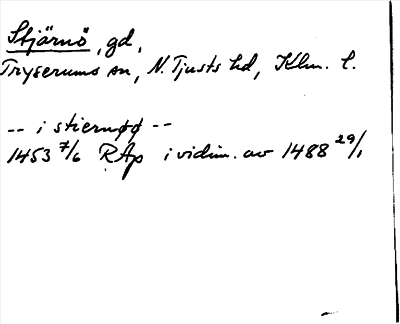 Stjärnö, gd,
Tryserums sn, N. Tjusts hd, Klm. l.
-- i stiernøø --
1453 7/6 RAp i vidim. av 1488 29/1